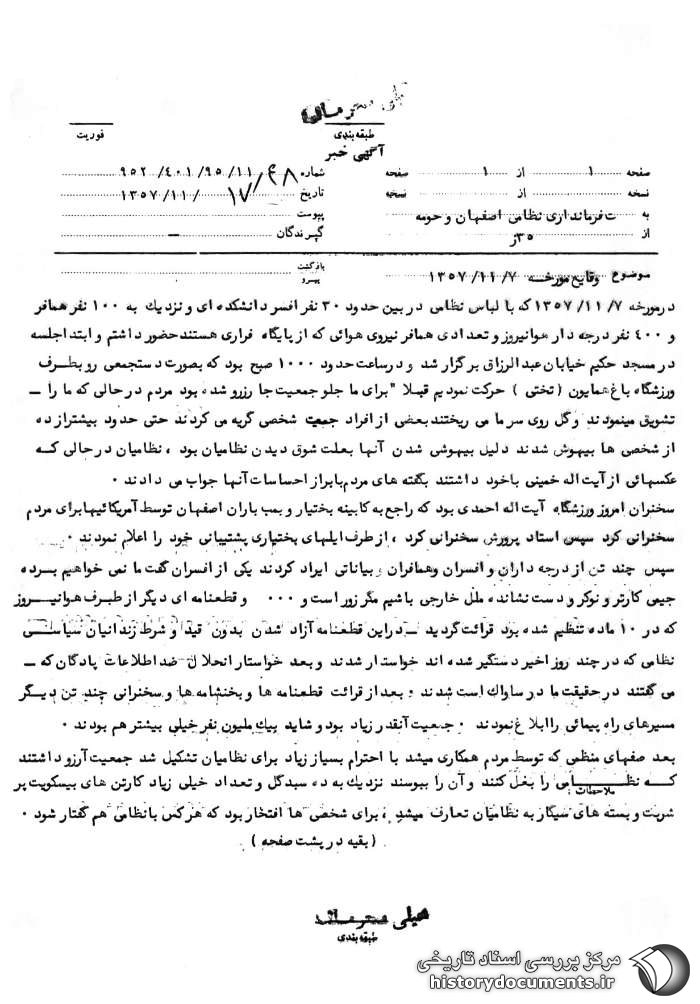 خیلی محرمانه
طبقه‌بندی
فوریت
آگهی خبر
صفحه ۱ از ۱ صفحه
شماره ۹۵۲/۴۰۱/۹۵/۱۱
نسخه از نسخه
تاریخ ۱۳۵۷/۱۱/۱۷
به ت فرمانداری نظامی اصفهان و حومه
پیوست
از ۳۵ر
گیرندگان –
موضوع وقایع مورخه ۱۳۵۷/۱۱/۷
بازگشت
پیرو
در مورخه ۱۳۵۷/۱۱/۷ که با لباس نظامی در بین حدود ۳۰ نفر افسر دانشکده ای و نزدیک به ۱۰۰ نفر همافر
و ۴۰۰ نفر درجه دار هوانیروز و تعدادی همافر نیروی هوائی که از پایگاه فراری هستند حضور داشتم و ابتدا جلسه
در مسجد حکیم خیابان عبدالرزاق برگزار شد و در ساعت حدود ۱۰۰۰ صبح بود که بصورت دستجمعی رو بطرف
ورزشگاه باغ همایون (تختی) حرکت نمودیم قبلا" برای ما جلو جمعیت جا رزرو شده بود مردم در حالی که ما را –
تشویق مینمودند و گل روی سر ما می ریختند بعضی از افراد جمعیت شخصی گریه می کردند حتی حدود بیشتر از ده
از شخصی ها بیهوش شدند دلیل بیهوشی شدن آنها بعلت شوق دیدن نظامیان بود ، نظامیان در حالی که
عکسهائی از آیت اله خمینی باخود داشتند بگفته های مردم با ابراز احساسات آنها جواب می دادند .
سخنران امروز ورزشگاه آیت اله احمدی بود که راجع به کابینه بختیار و بمب باران اصفهان توسط آمریکائیها برای مردم
سخنرانی کرد سپس استاد پرورش سخنرانی کرد ، از طرف ایلهای بختیاری پشتیبانی خود را اعلام نمودند .
سپس چند تن از درجه داران و افسران و همافران و بیاناتی ایراد کردند یکی از افسران گفت ما نمی خواهیم برده
جیمی کارتر و نوکر و دست نشانده ملل خارجی باشیم مگر زور است و ۰۰۰ و قطعنامه ای دیگر از طرف هوانیروز
که در ۱۰ ماده تنظیم شده بود قرائت گردید – در این قطعنامه آزاد شدن بدون قید و شرط زندانیان سیاسی
نظامی که در چند روز اخیر دستگیر شده اند خواستار شدند و بعد خواستار انحلال ضد اطلاعات پادگان که –
می گفتند در حقیقت ما در ساواک است شدند . بعد از قرائت قطعنامه ها و بخشنامه ها و سخنرانی چند تن دیگر
مسیرهای راه پیمائی را ابلاغ نمودند . جمعیت آنقدر زیاد بود و شاید بیک ملیون نفر خیلی بیشتر هم بودند .
بعد صفهای منظمی که توسط مردم همکاری میشد با احترام بسیار زیاد برای نظامیان تشکیل شد جمعیت آرزو داشتند
که نظامی را بغل کنند و آن را ببوسند نزدیک به ده سبد گل و تعداد خیلی زیاد کارتن های بیسکویت پر
ملاحظات :
شربت و بسته های سیگار به نظامیان تعارف میشد ، برای شخصی ها افتخار بود که هر کس با نظامی هم گفتار شود .
( بقیه در پشت صفحه )
خیلی محرمانه
طبقه‌بندی
مرکز بررسی اسناد تاریخی
historydocuments.ir